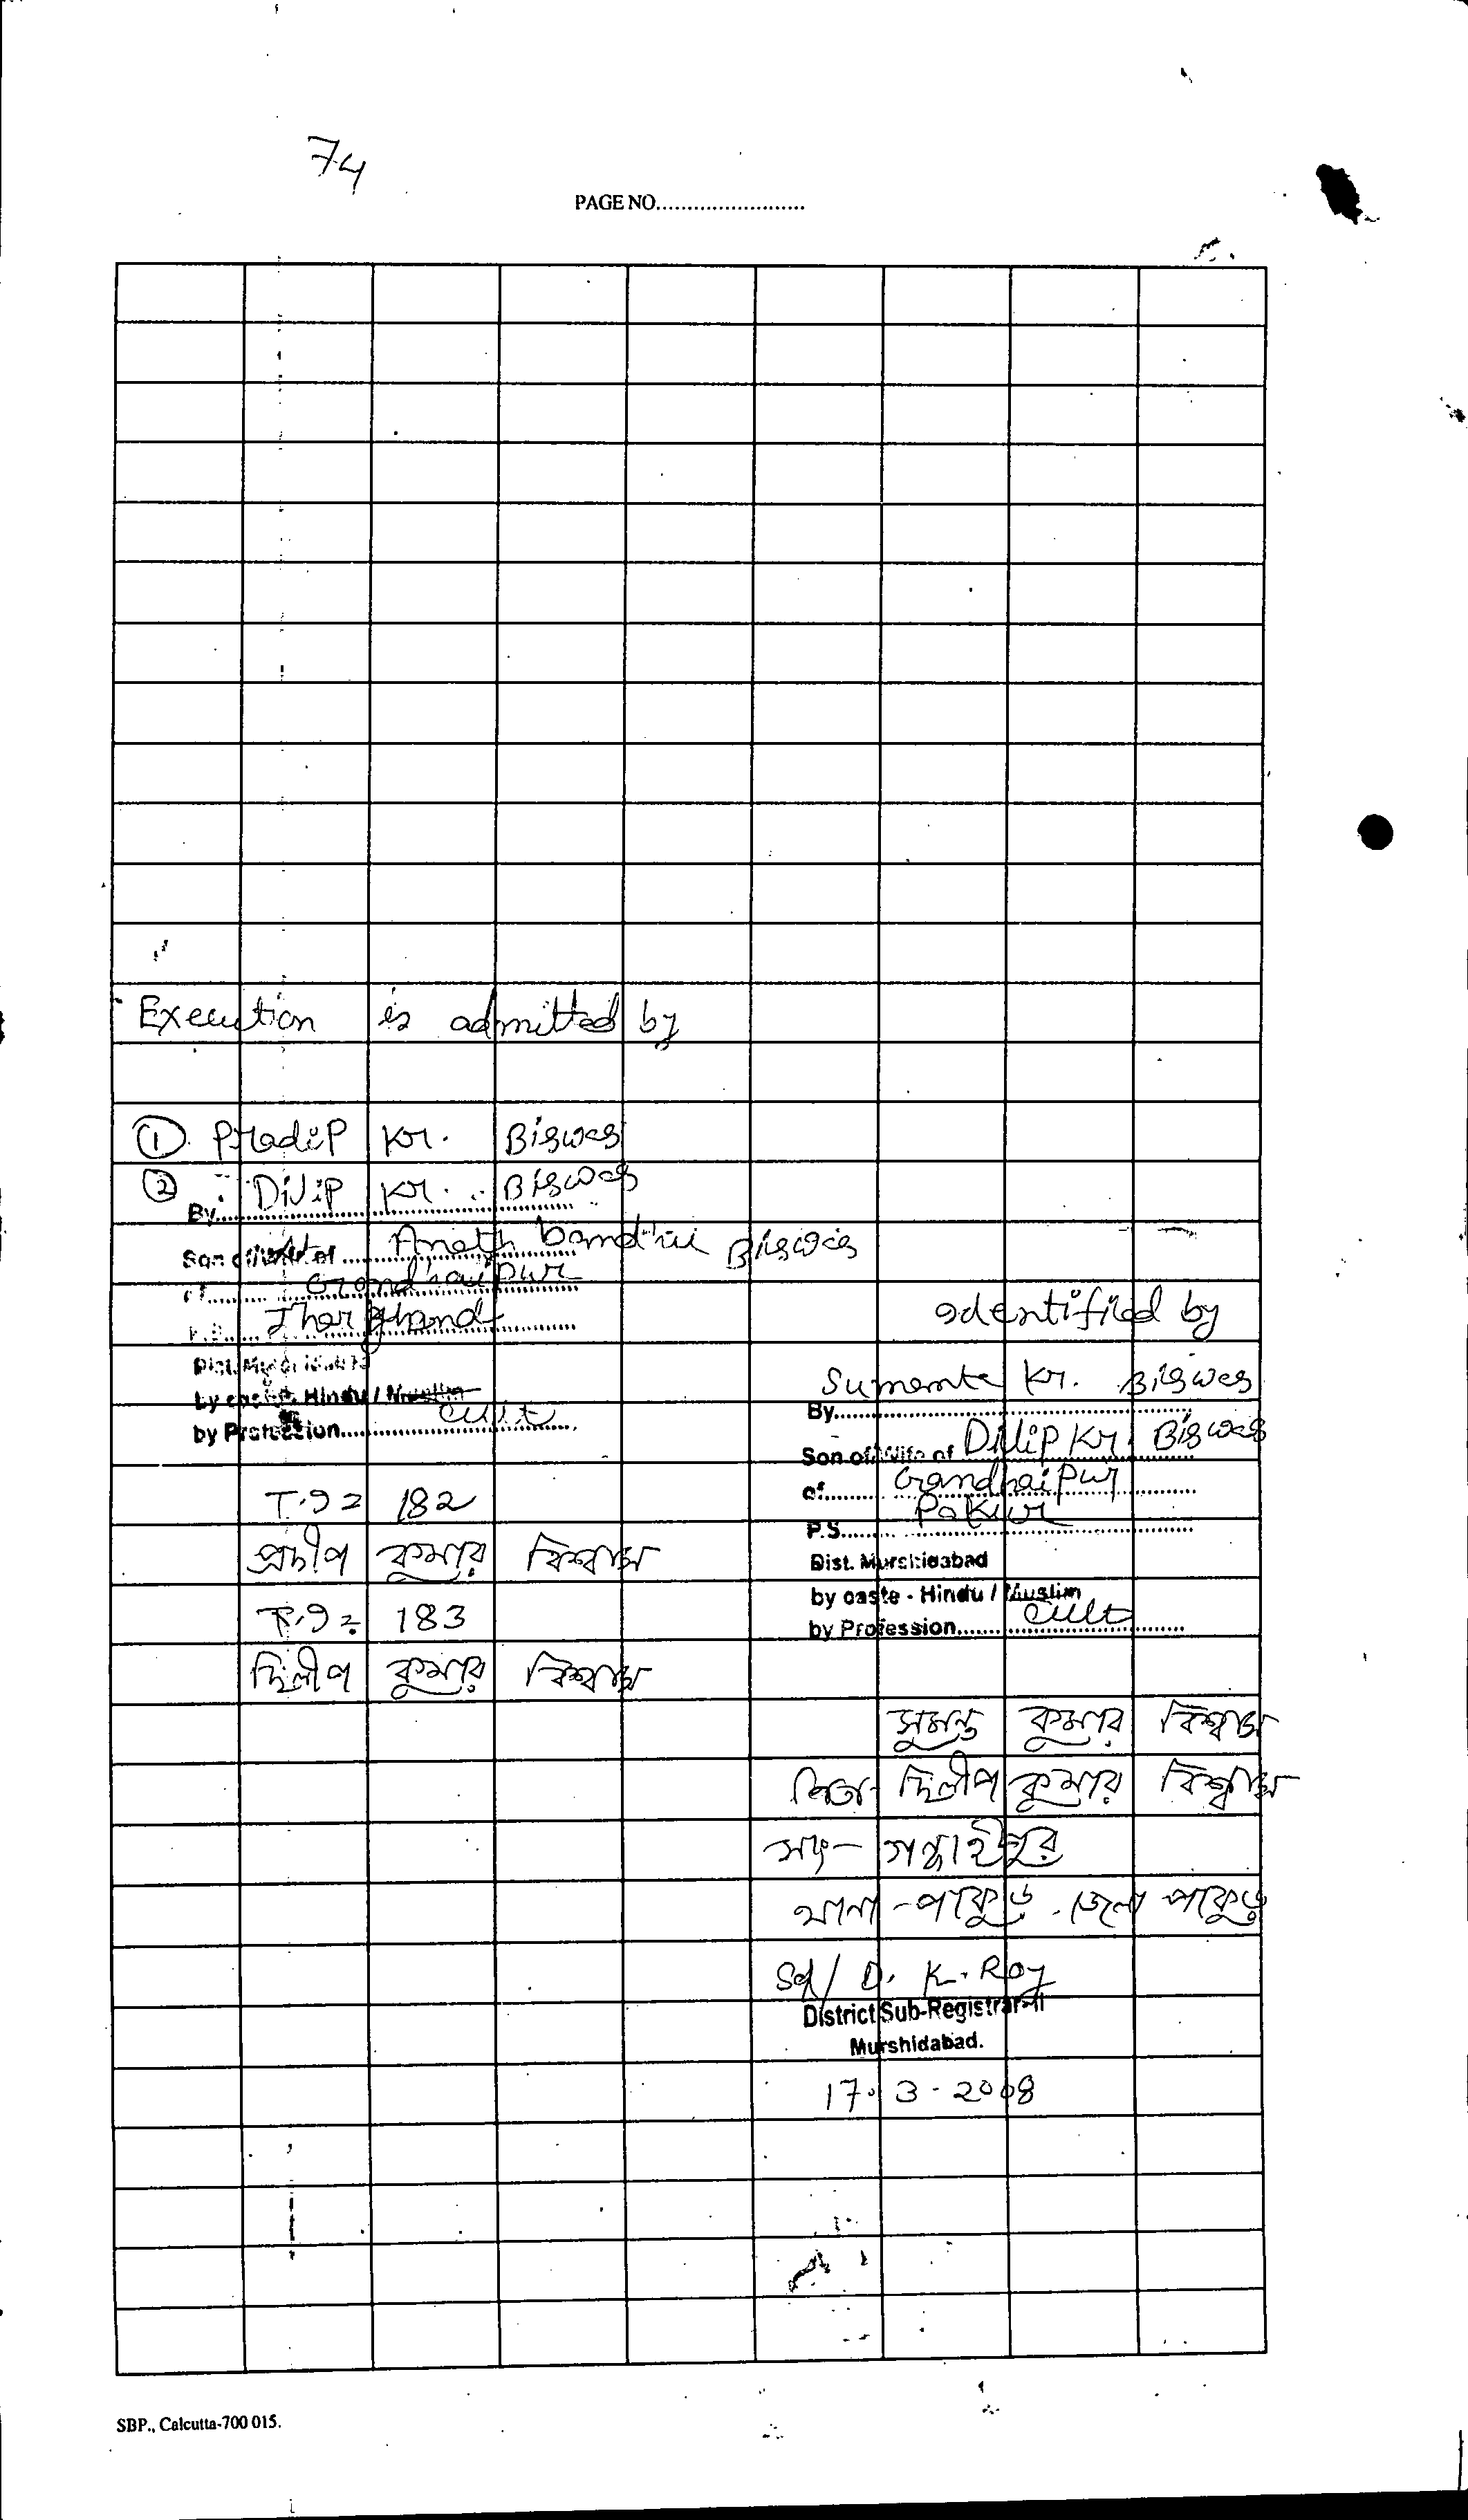 74
PAGE NO.........................
Execution is admitted by
① Pradip Kr. Biswas
② Dilip Kr. Biswas
By..............................
Son of/Wife of Anath bandhu Biswas
of Gandhaipur
P.S. Jharkhand
Dist. Murshidabad
by caste - Hindu / Muslim
by Profession cult
T.I 182
প্রদীপ কুমার বিশ্বাস
T.I 183
দিলীপ কুমার বিশ্বাস
identified by
Sumanta Kr. Biswas
By..............................
Son of/Wife of Dilip Kr. Biswas
of Gandhaipur
P.S. Pakur
Dist. Murshidabad
by caste - Hindu / Muslim
by Profession cult
সুমন্ত কুমার বিশ্বাস
পিতা- দিলীপ কুমার বিশ্বাস
সাং- গন্ধাইপুর
থানা - পাকুড় . জেলা পাকুড়
Sd/ D. K. Roy
District Sub-Registrar-II
Murshidabad.
17.3-2008
SBP., Calcutta-700 015.